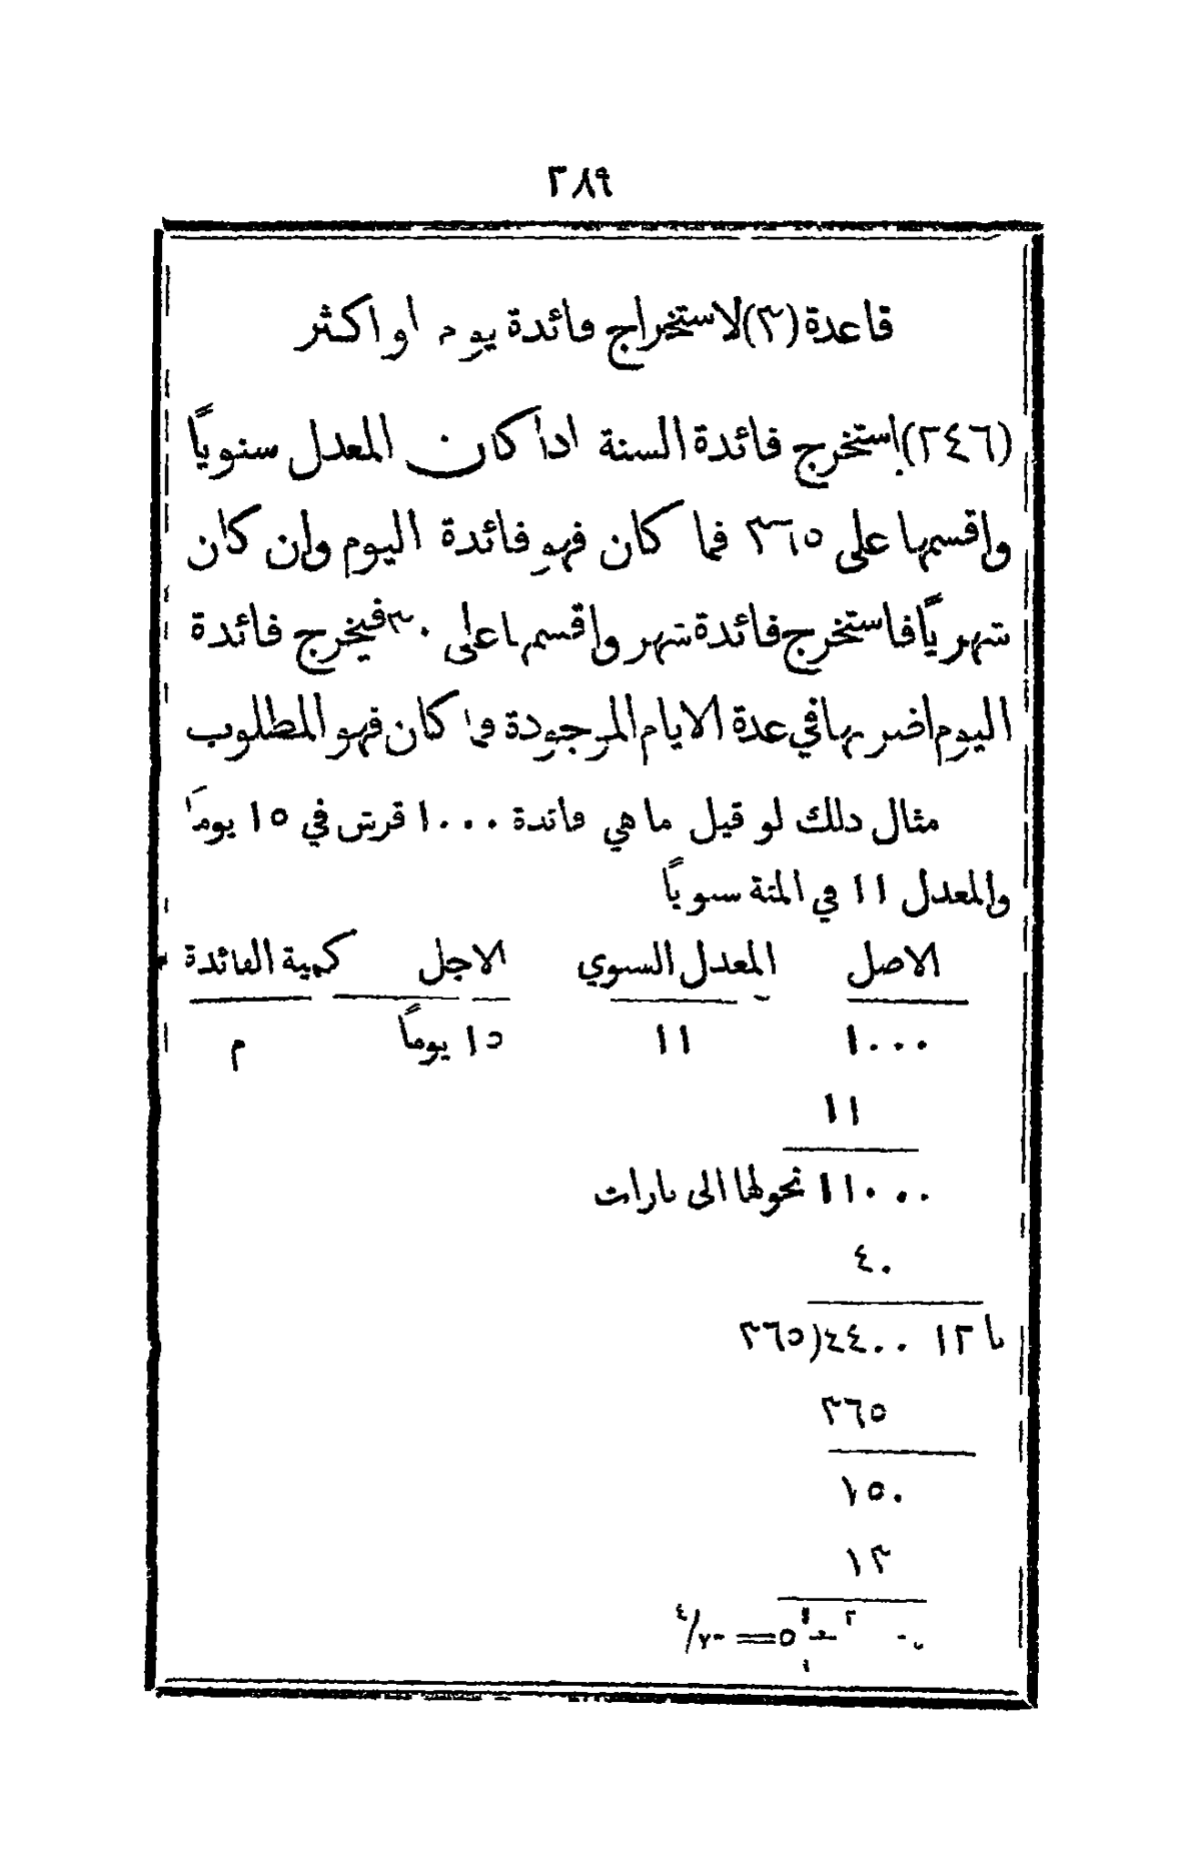 ٣٨٩
قاعدة (٣) لاستخراج فائدة يوم او اكثر
(٢٤٦) إستخرج فائدة السنة اذا كان المعدل سنويًا
واقسمها على ٣٦٥ فما كان فهو فائدة اليوم وإن كان
شهريًا فاستخرج فائدة شهر واقسمها على ٣٠ فيخرج فائدة
اليوم اضربها في عدة الايام الموجودة فما كان فهو المطلوب
مثال ذلك لو قيل ما هي فائدة ١٠٠٠ قرش في ١٥ يومًا
والمعدل ١١ في المئة سنويًا
الاصل المعدل السنوي الاجل كمية الفائدة
١٠٠٠ ١١ ١٥ يومًا م
١١
١١٠٠٠ نحولها الى بارات
٤٠
٣٦٥)٤٤٠٠ ١٢ با
٣٦٥
١٥٠
١٣